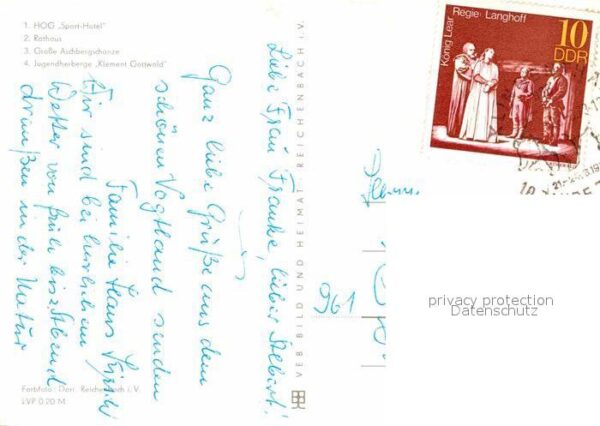 1. HOG „Sport-Hotel"
2. Rathaus
3. Große Aschbergschanze
4. Jugendherberge „Klement Gottwald"
Liebe Frau Franke, lieber Albert!
Ganz liebe Grüße aus dem
schönen Vogtland senden
Familie Hans
Wir sind bei herrlichem
Wetter von früh bis Abend
draußen in der Natur
Farbfoto: Darr, Reichenbach i. V.
LVP 0.20 M
VEB BILD UND HEIMAT REICHENBACH i. V.
König Lear Regie: Langhoff
10
DDR
961
privacy protection
Datenschutz